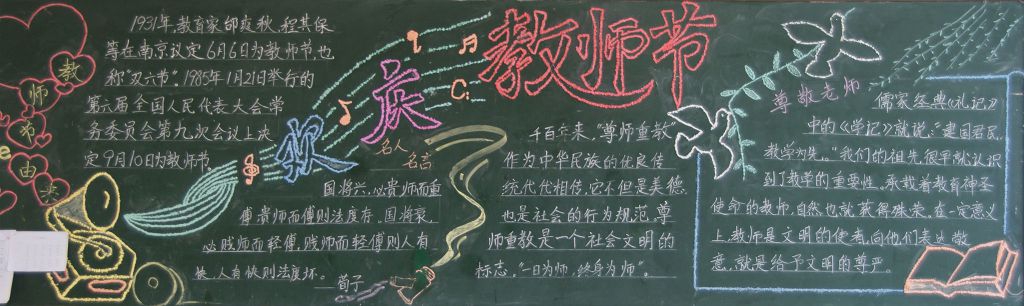 教师节由来
1931年,教育家邰爽秋、程其保
等在南京议定6月6日为教师节,也
称"双六节"。1985年1月21日举行的
第六届全国人民代表大会常
务委员会第九次会议上决
定9月10日为教师节。
欢庆教师节
名人
名言
国将兴,必贵师而重
傅,贵师而重傅则法度存。国将衰,
必贱师而轻傅,贱师而轻傅则人有
快,人有快则法度坏。 荀子
千百年来,"尊师重教"
作为中华民族的优良传
统代代相传,它不但是美德
也是社会的行为规范,尊
师重教是一个社会文明的
标志,"一日为师,终身为师"。
尊敬老师
儒家经典《礼记》
中的《学记》就说:"建国君民,
教学为先。"我们的祖先很早就认识
到了教学的重要性。承载着教育神圣
使命的教师,自然也就获得殊荣。在一定意义
上,教师是文明的使者,向他们表达敬
意,就是给予文明的尊严。